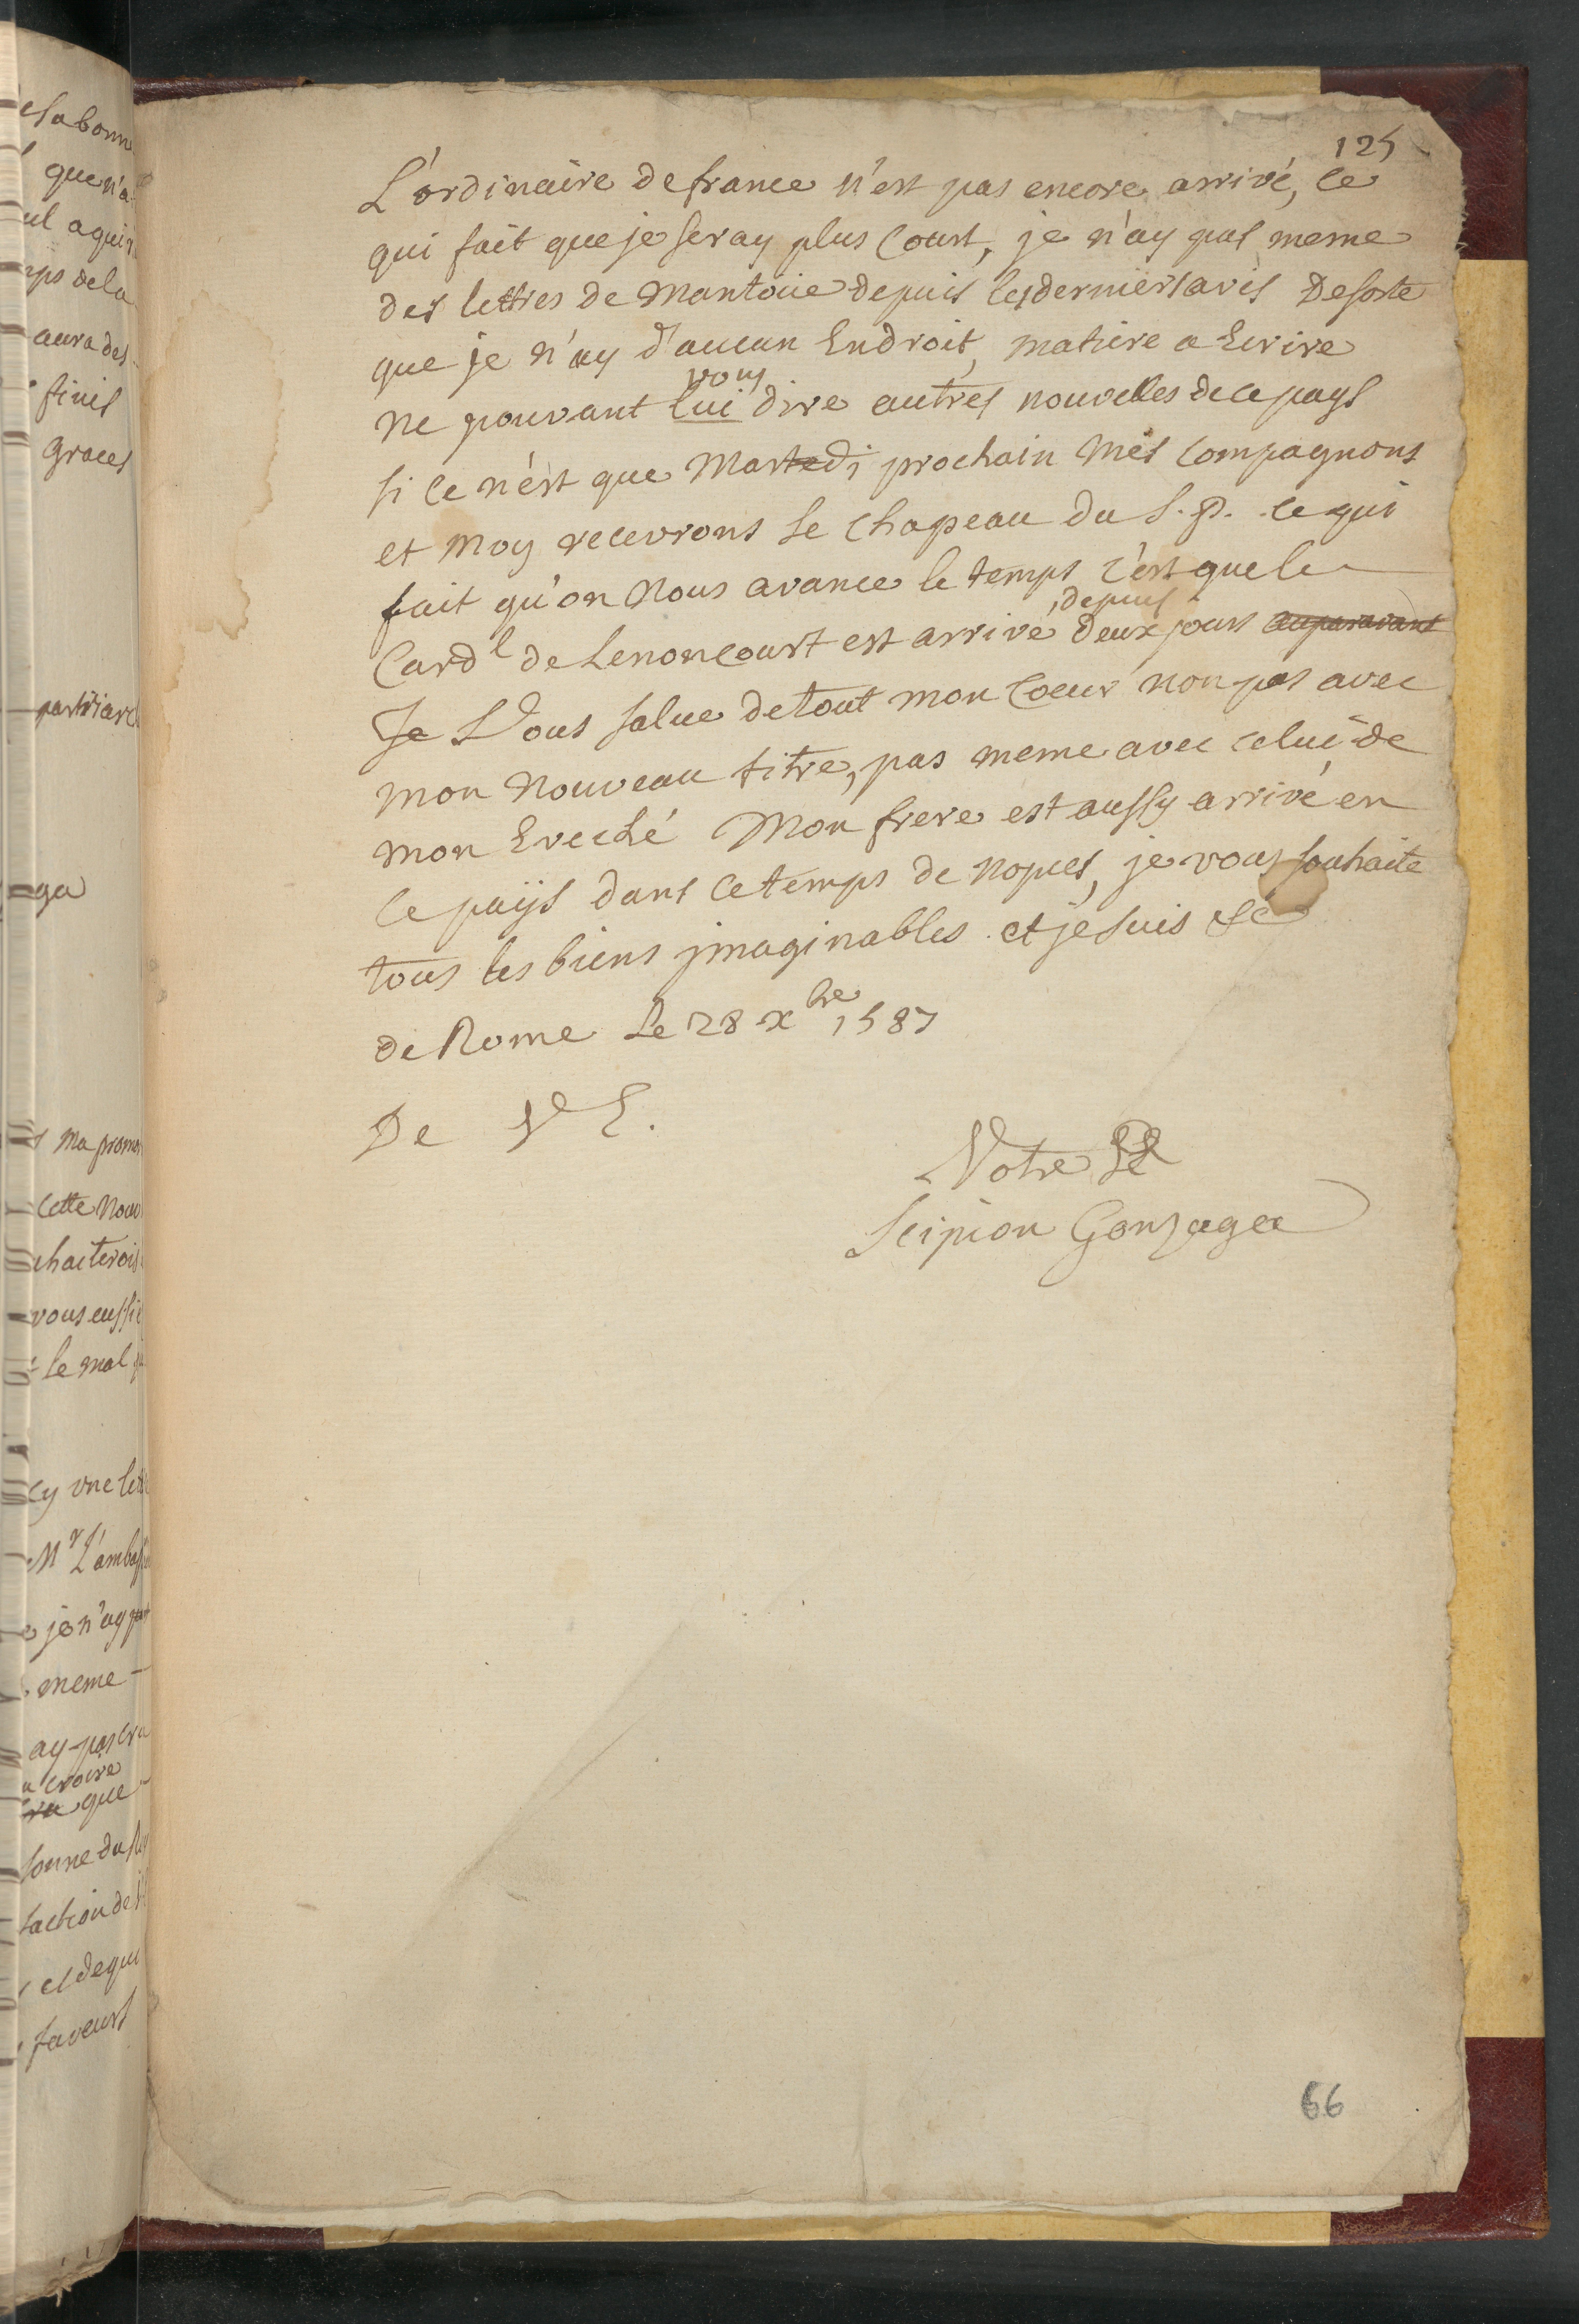 125
L'ordinaire de france n'est pas encore arrivé, ce
qui fait que je seray plus Court, je n'ay pas meme
des lettres de Mantoüe depuis les derniers avis Desorte
que je n'ay d'aucun Endroit, matiere a Ecrire
vous
ne pouvant lui dire autres nouvelles de ce pays
si ce n'est que Martedi prochain Mes Compagnons
et Moy recevrons le Chapeau du S. P. ce qui
fait qu'on Nous avance le temps c'est que le
depuis
Card.l de Lenoncourt est arrivé deux jours auparavant
Je Vous salue de tout mon Coeur non pas avec
mon Nouveau titre, pas meme avec celui de
mon Eveché Mon frere est aussy arrivé en
ce païs dans ce temps de nopces, je vous souhaite
tous les biens jmaginables. et je suis &c
de Rome Le 28 Xbre 1587
De V E.
Votre
Scipion Gonzaga
66
es a bonn
que n'a
aura des
finis
Graces
patriarc
ga
Ma promo
Cette Nouv
uhaiterois
vous eussie
le mal
cy vne let
Mr L'ambass
je n'ay
meme
ay pas cru
croire
que
sonne du
el dequi
faveurs